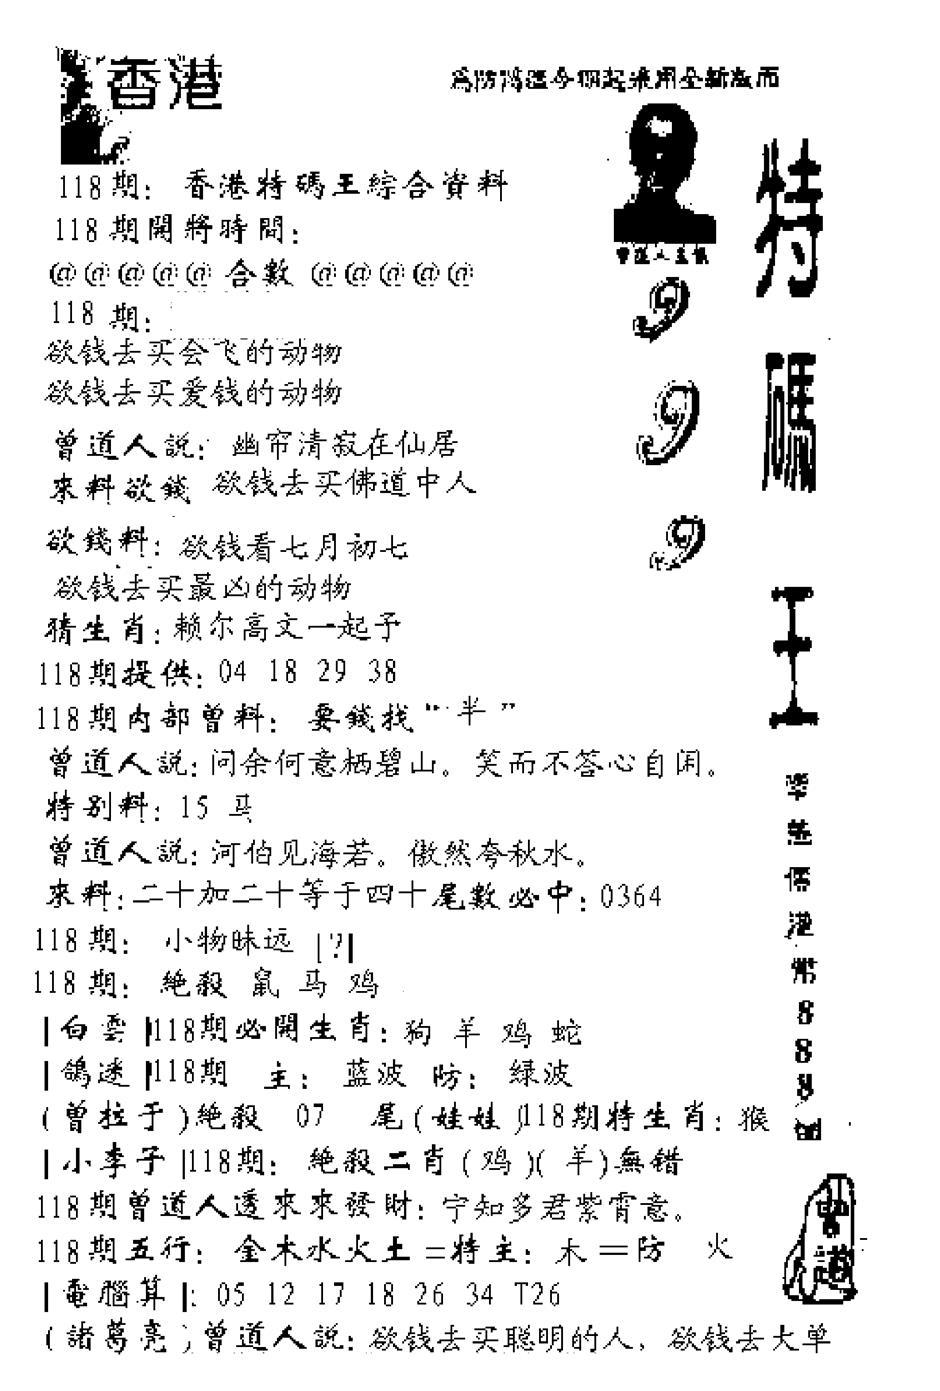 香港
特碼王
9
9
9
118期：香港特碼王綜合資料
118期開將時間：
@@@@@合數@@@@@
118期：
欲钱去买会飞的动物
欲钱去买爱钱的动物
曾道人説：幽帘清寂在仙居
來料欲錢 欲钱去买佛道中人
欲錢料：欲钱看七月初七
欲钱去买最凶的动物
猜生肖：赖尔高文一起予
118期提供：04 18 29 38
118期内部曾料：要錢找“半”
曾道人説：问余何意栖碧山。笑而不答心自闲。
特别料：15 马
曾道人説：河伯见海若。傲然夸秋水。
來料：二十加二十等于四十尾數必中：0364
118期：小物昧远 |?|
118期：絶殺 鼠 马 鸡
|白雲|118期必開生肖：狗 羊 鸡 蛇
|鴿迷|118期 主：蓝波 防：緑波
(曾拉于)絶殺 07 尾(娃娃)118期特生肖：猴
|小李子|118期：絶殺二肖(鸡)(羊)無錯
118期曾道人透來來發財：宁知多君紫霄意。
118期五行：金木水火土=特主：木=防 火
|電腦算|：05 12 17 18 26 34 T26
(諸葛亮)曾道人説：欲钱去买聪明的人，欲钱去大单
港幣888
曾道